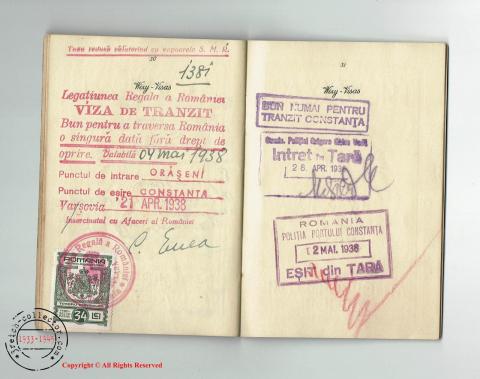 Taxa redusă călătorind cu vapoarele S. M. R.
30
Wizy-Visas
1381
Legațiunea Regală a României
VIZA DE TRANZIT
Bun pentru a traversa România
o singură dată fără drept de
oprire. Valabilă 04 mai 1938
Punctul de intrare ORĂȘENI
Punctul de eșire CONSTANȚA
Varșovia 21 APR. 1938
Insărcinatul cu Afaceri al României
Regală a României
ROMANIA
34 LEI
31
Wizy-Visas
BUN NUMAI PENTRU
TRANZIT CONSTANȚA
Grigore Ghica Vodă
Intrat in Țară
26 APR. 1938
ROMANIA
POLIȚIA PORTULUI CONSTANȚA
2 MAI. 1938
EȘIT din ȚARĂ
3reich-collector.com
1933-1945
Copyright © All Rights Reserved